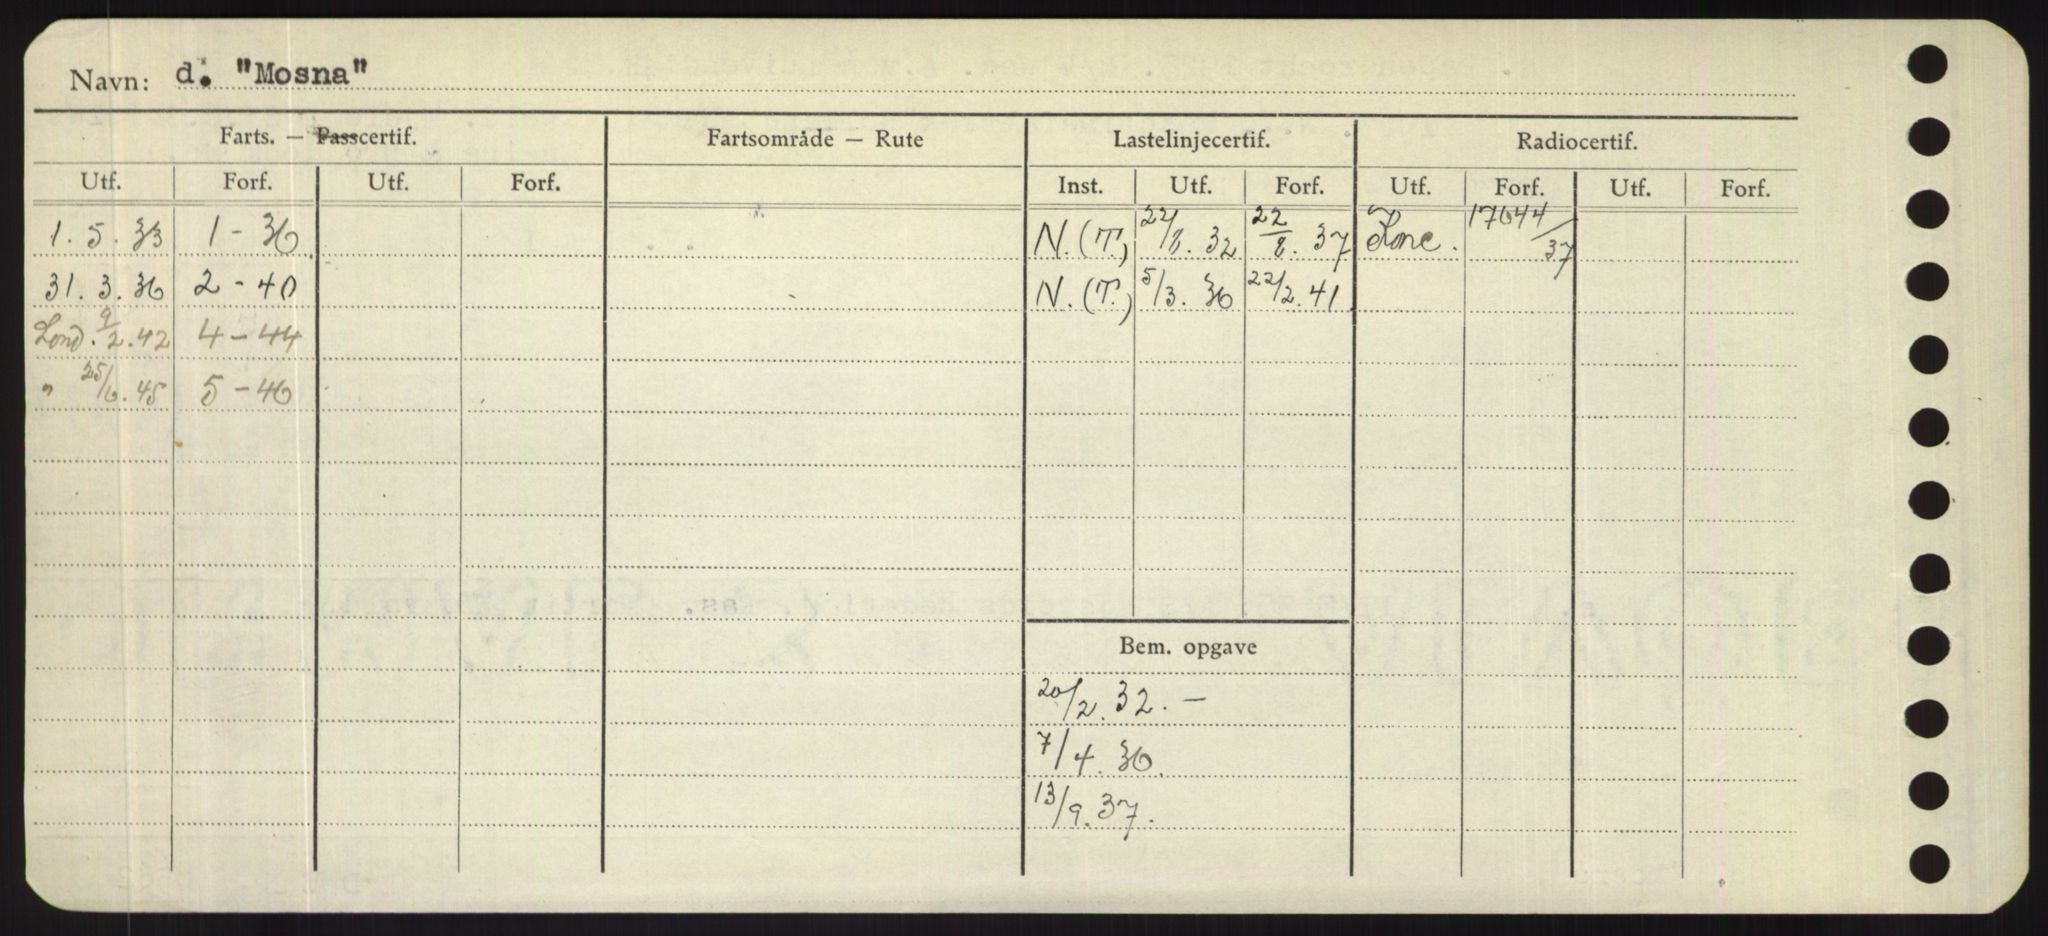 Navn: d. "Mosna"
Farts. — Passcertif. Fartsområde — Rute Lastelinjecertif. Radiocertif.
Utf. Forf. Utf. Forf. Inst. Utf. Forf. Utf. Forf. Utf. Forf.
1. 5. 33 1 - 36 N. (T.) 22/8. 32 22/8. 37 17644/37
31. 3. 36 2 - 40 N. (T.) 5/3. 36 22/2. 41
Lond. 9/2. 42 4 - 44
" 25/6. 45 5 - 46
Bem. opgave
20/2. 32. —
7/4. 36.
13/9. 37.